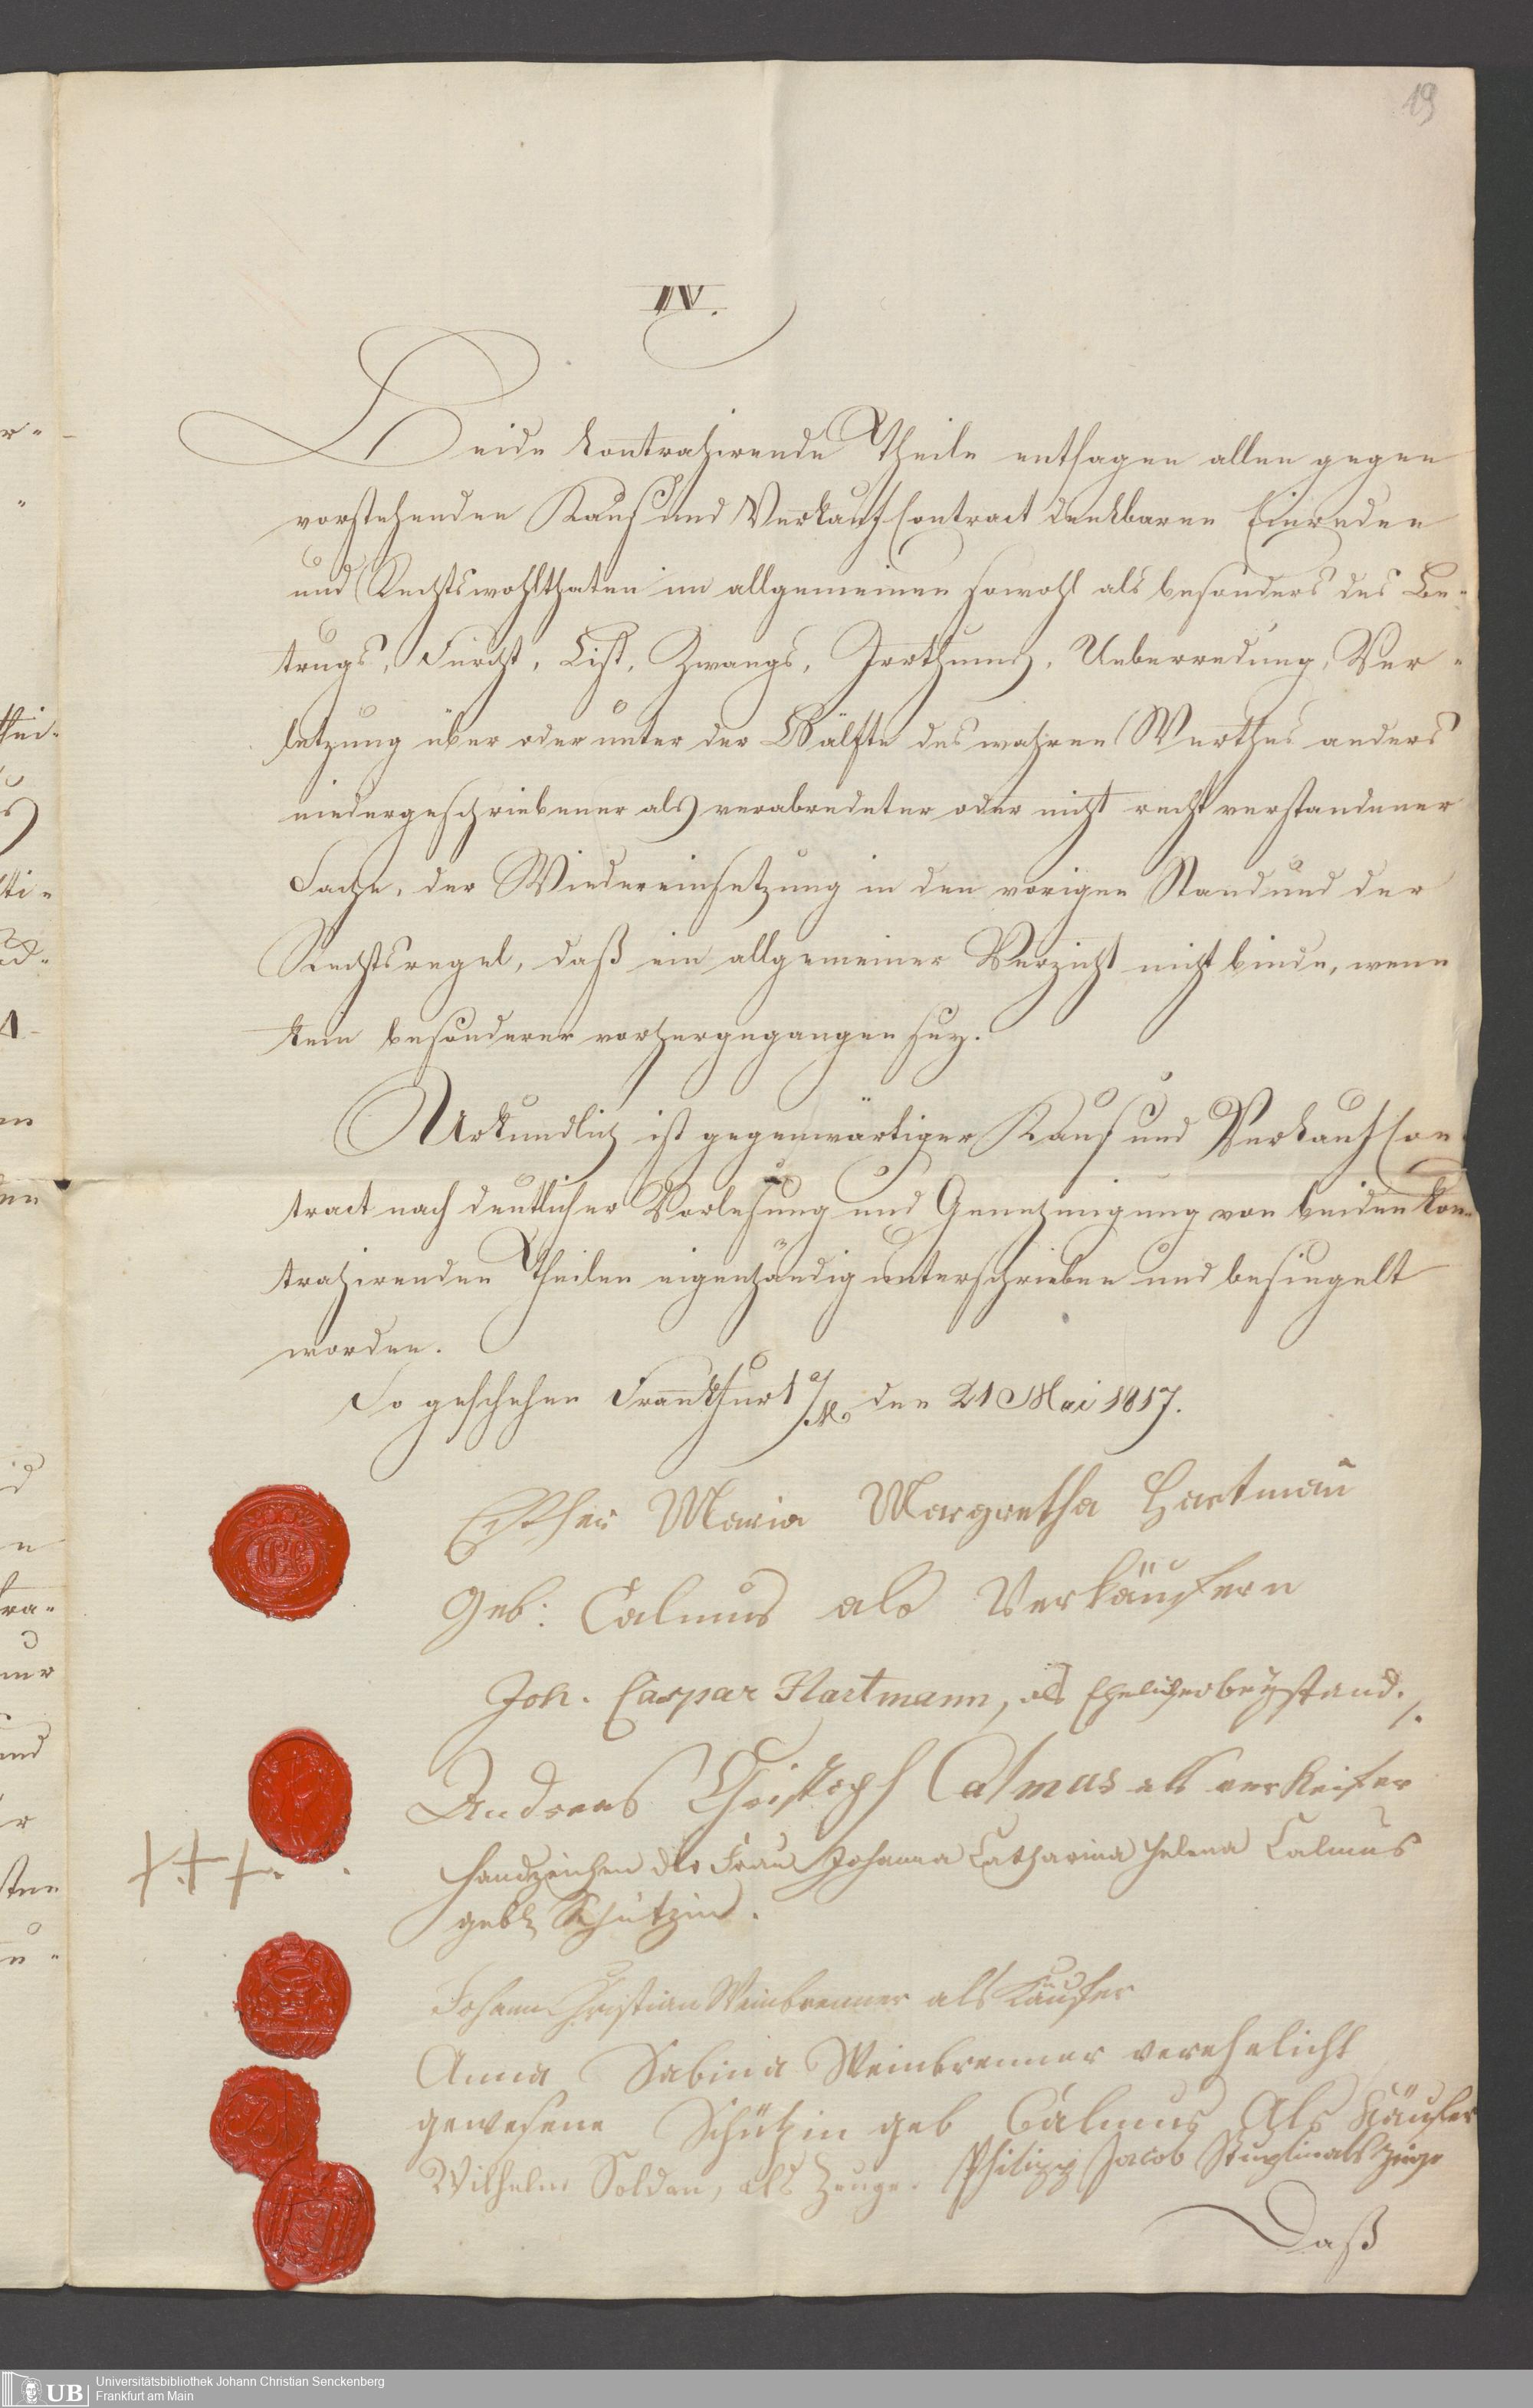 19
IV.
Beide kontrahirende Theile entsagen allen gegen
vorstehenden Kauf und Verkauf Contract denkbaren Einreden
und Rechtswohlthaten im allgemeinen sowohl als besonders des Be-
trugs, Furcht, List, Zwangs, Irrthums, Ueberredung, Ver-
letzung über oder unter der Hälfte des wahren Werthes anders
niedergeschriebener als verabredeter oder nicht recht verstandener
Sache, der Wiedereinsetzung in den vorigen Stand und der
Rechtsregel, daß ein allgemeiner Verzicht nicht binde, wenn
kein besonderer vorhergegangen sey.
Urkundlich ist gegenwärtiger Kauf und Verkauf Con-
tract nach deutlicher Vorlesung und Genehmigung von beiden kon-
trahirenden Theilen eigenhändig unterschrieben und besiegelt
worden.
So geschehen Frankfurt a/M. den 21 Mai 1817.
Esther Maria Margretha Hartman̄
Geb: Calmus als Verkäufern
Joh. Caspar Hartmann, als Ehelicher beystand.
Andreas Christoph Calmus als verKeifer
+++. Handzeichen der Frau Johanna Catharina Helena Calmus
gebh Schützin.
Johann Christian Weinbrenner als Käufer
Anna Sabina Weinbrenner verehelicht
gewesene Schützin geb Calmus Als Käufer
Wilhelm Soldan, als Zeuge. Philipp Jacob als Zeuge
Daß
Universitätsbibliothek Johann Christian Senckenberg
Frankfurt am Main
UB